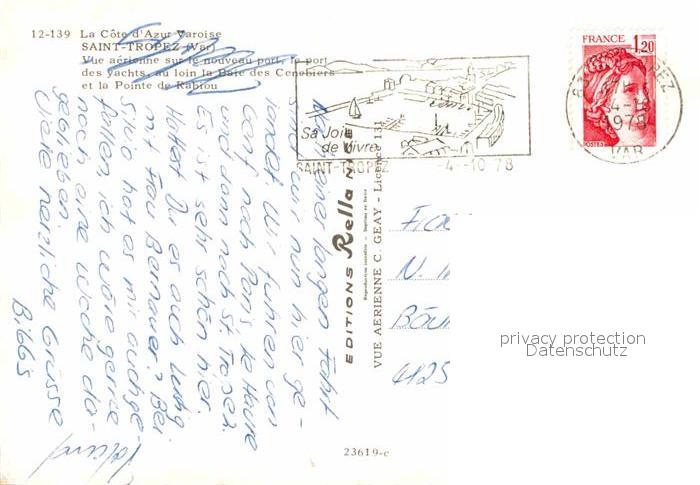 12-139 La Côte d'Azur Varoise
SAINT-TROPEZ (Var)
Vue aérienne sur le nouveau port, le port
des yachts, au loin la Baie des Cenebiers
et la Pointe de Rabiou
FRANCE 1,20
POSTES
4-10
1978
VAR
Sa Joie
de Vivre
SAINT-TROPEZ -4-10 78
EDITIONS Rella NICE
VUE AERIENNE C. GEAY - Licence 131
Nach einer langen Fahrt
sind wir nun hier ge-
landet. Wir fuhren von
Genf nach Paris le Havre
und dann nach St. Tropez.
Es ist sehr schön hier.
Hattet Ihr es auch lustig
mit Frau Bernauer? Bei
Silvio hat es mir auch ge-
fallen ich wäre gerne
noch eine Woche da-
geblieben
Viele herzliche Grüsse
Bibbis
4125
privacy protection
Datenschutz
23619-c